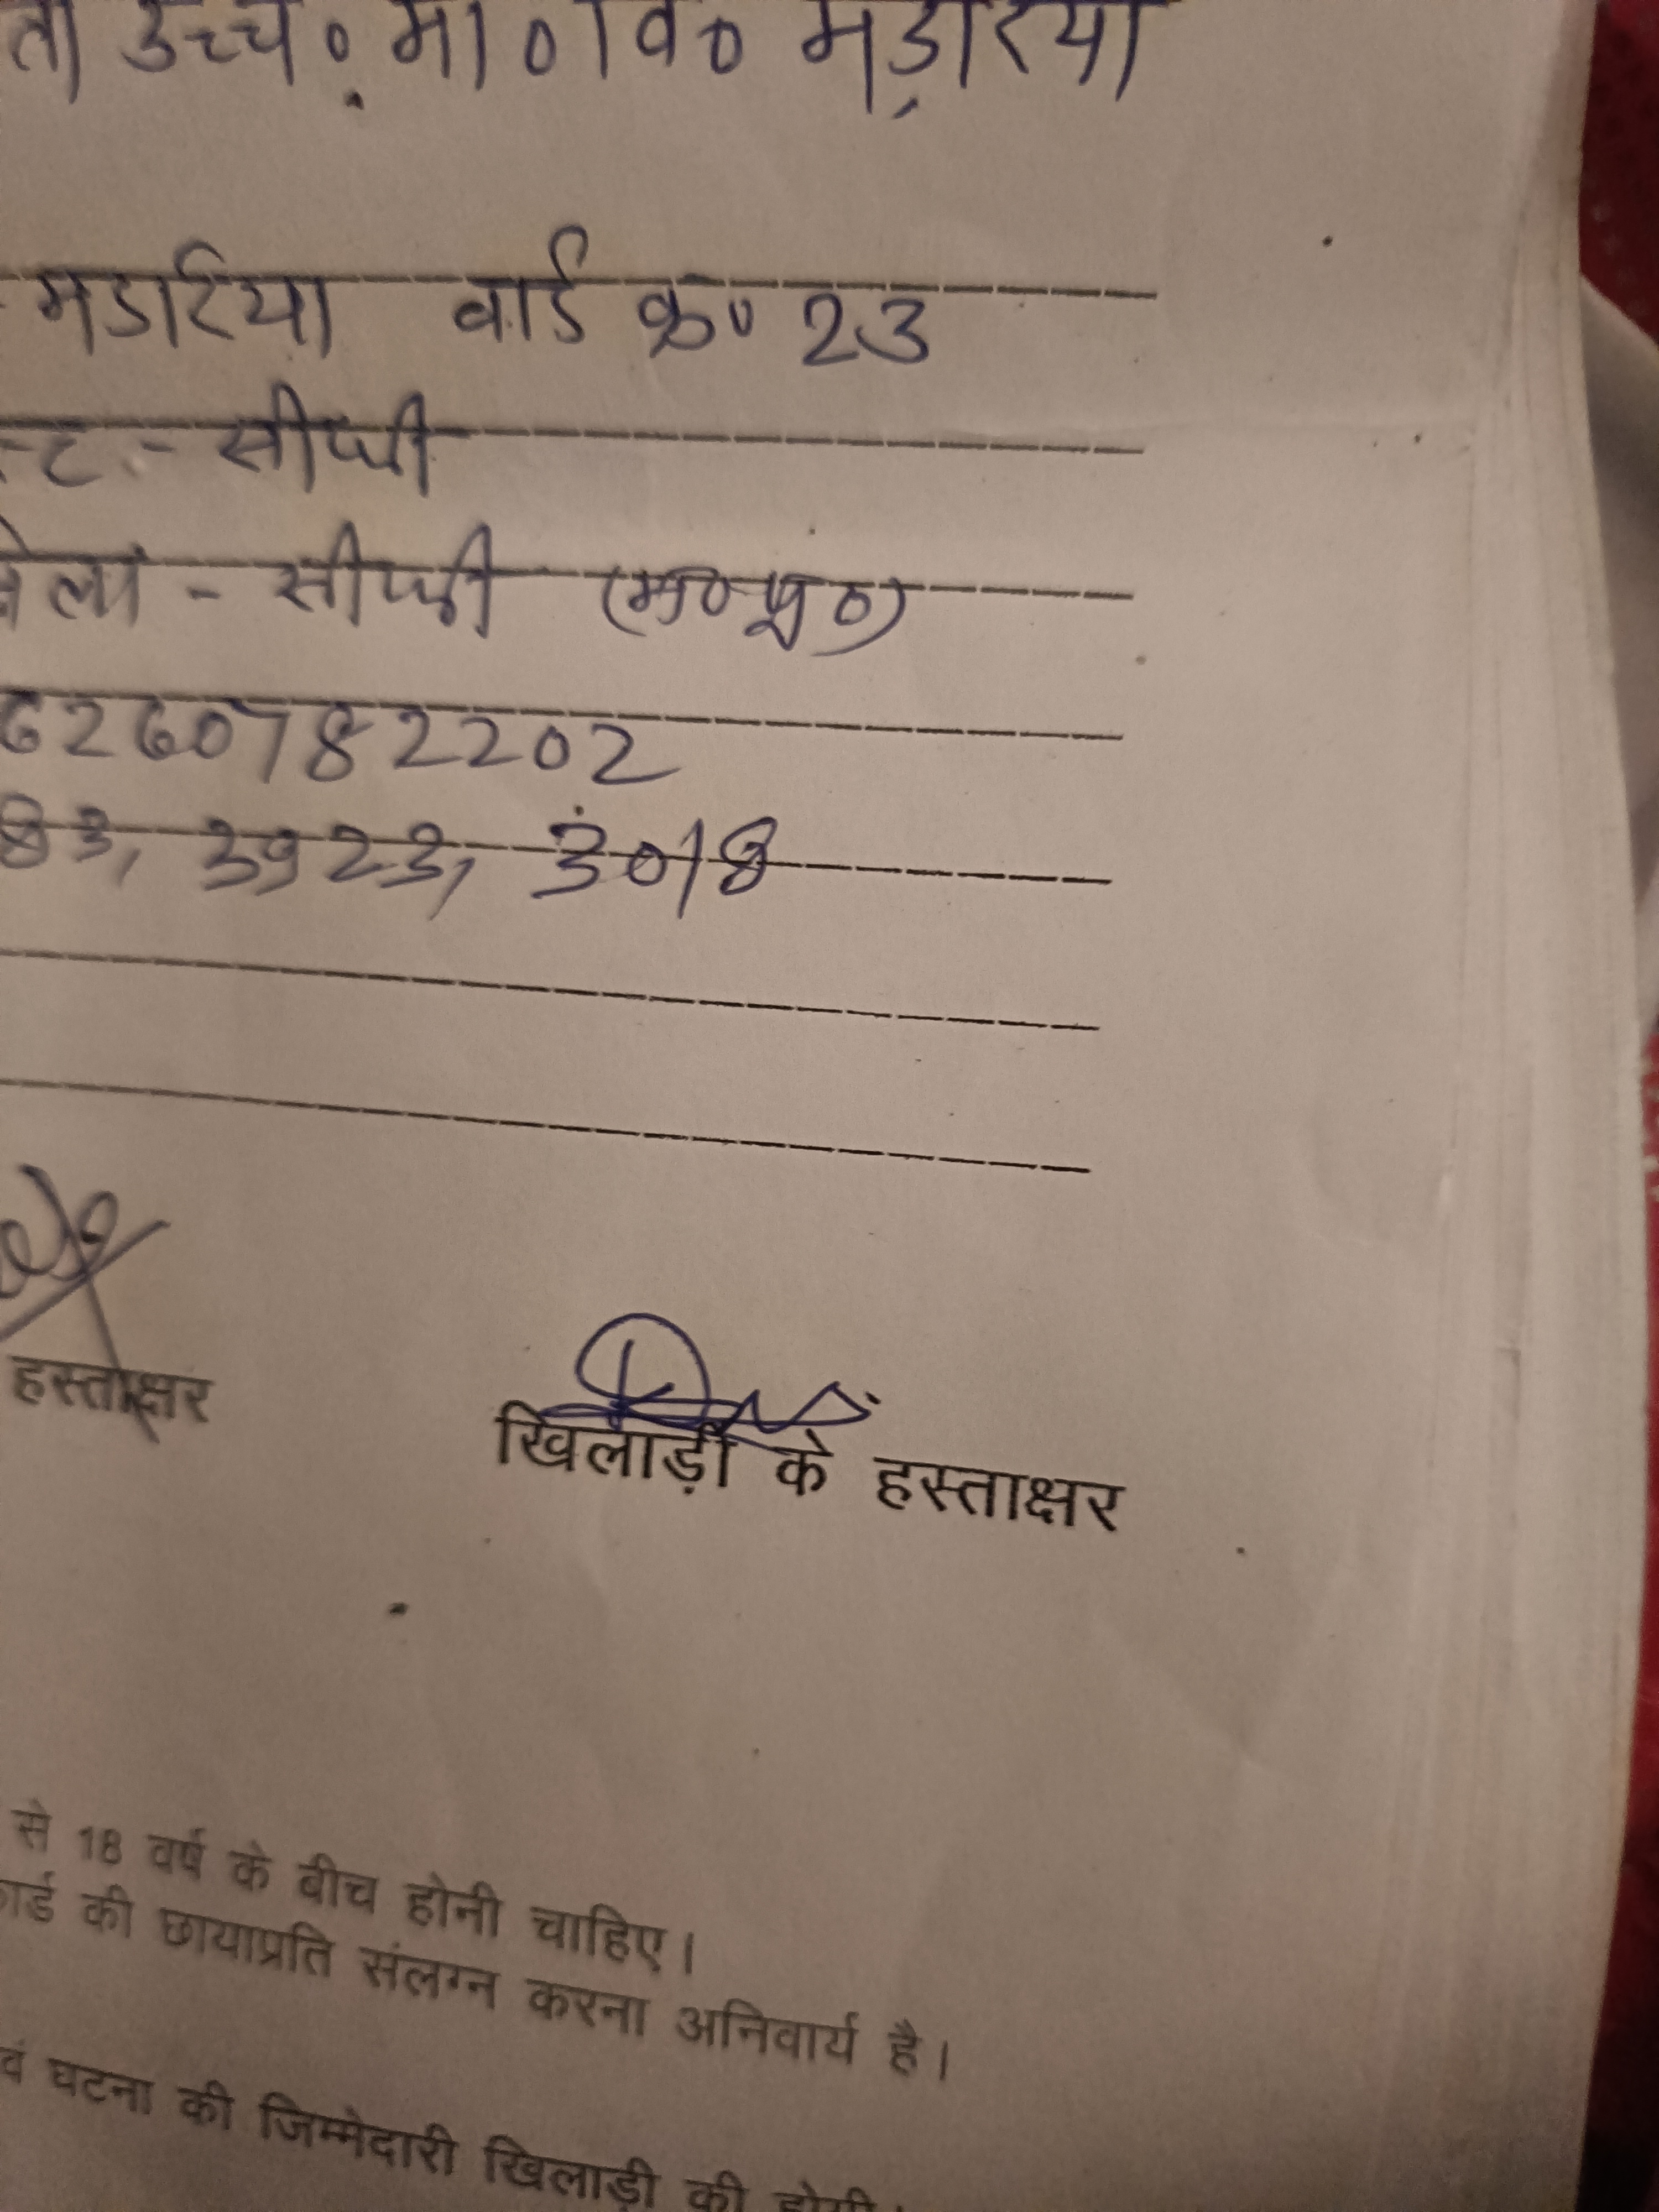 उच्च० मा० वि० मड़रिया
मडरिया वार्ड क्र० 23
सीधी
सीधी (म०प्र०)
6260782202
83, 3923, 3018
हस्ताक्षर
खिलाड़ी के हस्ताक्षर
से 18 वर्ष के बीच होनी चाहिए।
की छायाप्रति संलग्न करना अनिवार्य है।
घटना की जिम्मेदारी खिलाड़ी की होगी।